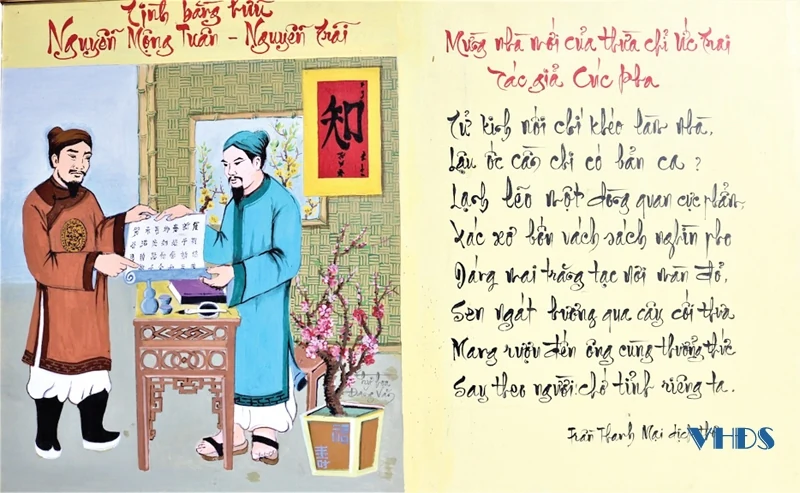 Tình bằng hữu
Nguyễn Mộng Tuân - Nguyễn Trãi
知
Thư họa
Đặng Văn
Mừng nhà mới của thừa chỉ Ức Trai
Tác giả Cúc Pha
Tử kinh nối chí khéo làm nhà,
Lậu ốc cần chi có bản ca?
Lạnh lẽo một dòng quan cực phẩm
Xác xơ bốn vách sách nghìn pho
Dáng mai trắng tạc nơi màn đỏ,
Sen ngát hương qua cây cối thưa
Mang rượu đến ông cùng thưởng thức
Say theo người: chớ tỉnh riêng ta.
Trần Thanh Mại dịch thơ
VHDS